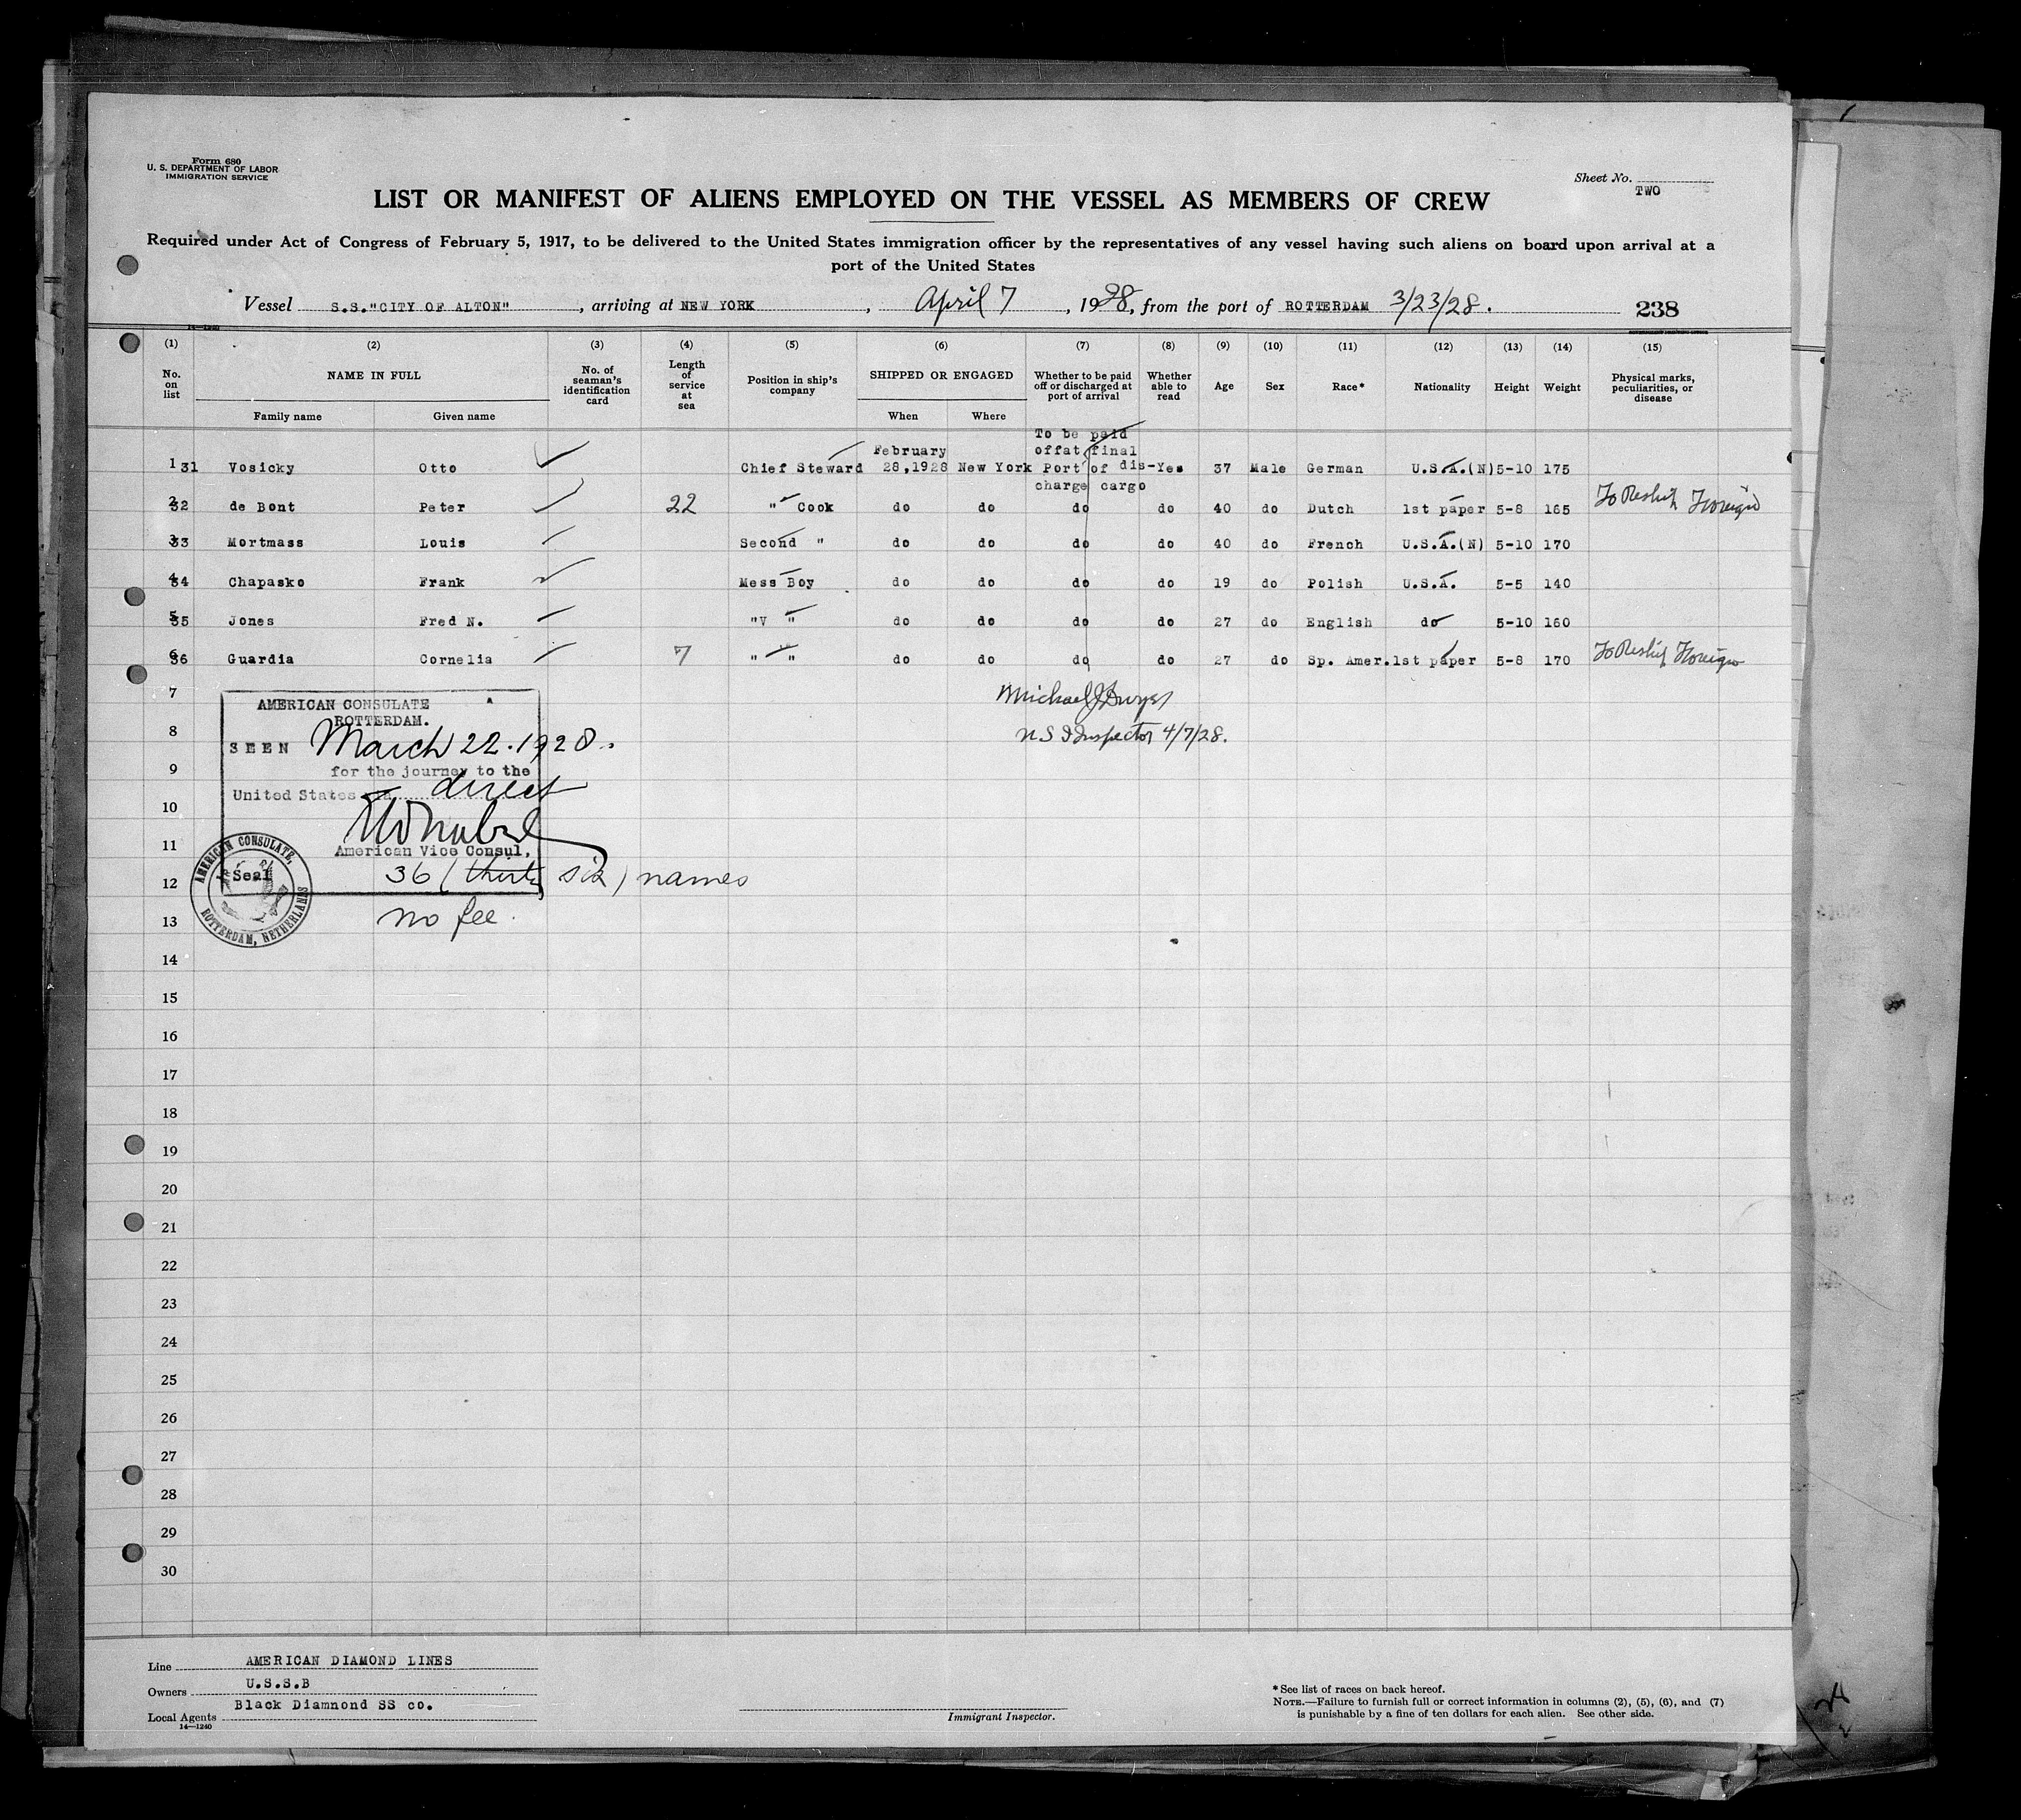 Form 680
U. S. DEPARTMENT OF LABOR
IMMIGRATION SERVICE
Sheet No.
TWO
LIST OR MANIFEST OF ALIENS EMPLOYED ON THE VESSEL AS MEMBERS OF CREW
Required under Act of Congress of February 5, 1917, to be delivered to the United States immigration officer by the representatives of any vessel having such aliens on board upon arrival at a
port of the United States
Vessel S.S."CITY OF ALTON", arriving at NEW YORK, April 7, 1928, from the port of ROTTERDAM 3/23/28. 238
14—1240
(1) (2) (3) (4) (5) (6) (7) (8) (9) (10) (11) (12) (13) (14) (15)
No. on list NAME IN FULL No. of seaman's identification card Length of service at sea Position in ship's company SHIPPED OR ENGAGED Whether to be paid off or discharged at port of arrival Whether able to read Age Sex Race* Nationality Height Weight Physical marks, peculiarities, or disease
Family name Given name When Where
To be paid
February offat final
1 31 Vosicky Otto Chief Steward 28,1928 New York Port of dis- Yes 37 Male German U.S.A.(N) 5-10 175
charge cargo
2 32 de Bont Peter 22 " Cook do do do do 40 do Dutch 1st paper 5-8 165 To Reship Foreign
3 33 Mortmass Louis Second " do do do do 40 do French U.S.A.(N) 5-10 170
4 34 Chapasko Frank Mess Boy do do do do 19 do Polish U.S.A. 5-5 140
5 35 Jones Fred N. "V " do do do do 27 do English do 5-10 160
6 36 Guardia Cornelia 7 " " do do do do 27 do Sp. Amer. 1st paper 5-8 170 To Reship Foreign
7
AMERICAN CONSULATE
ROTTERDAM.
Michael J
8
SEEN March 22. 1928.
Inspector 4/7/28.
9
for the journey to the
United States direct
10
11
American Vice Consul,
12
Seal
36 (thirty six) names
AMERICAN CONSULATE,
ROTTERDAM, NETHERLANDS
13
no fee.
14
15
16
17
18
19
20
21
22
23
24
25
26
27
28
29
30
Line AMERICAN DIAMOND LINES
Owners U.S.S.B
Local Agents Black Diamnond SS co.
14—1240
Immigrant Inspector.
*See list of races on back hereof.
NOTE.—Failure to furnish full or correct information in columns (2), (5), (6), and (7)
is punishable by a fine of ten dollars for each alien. See other side.